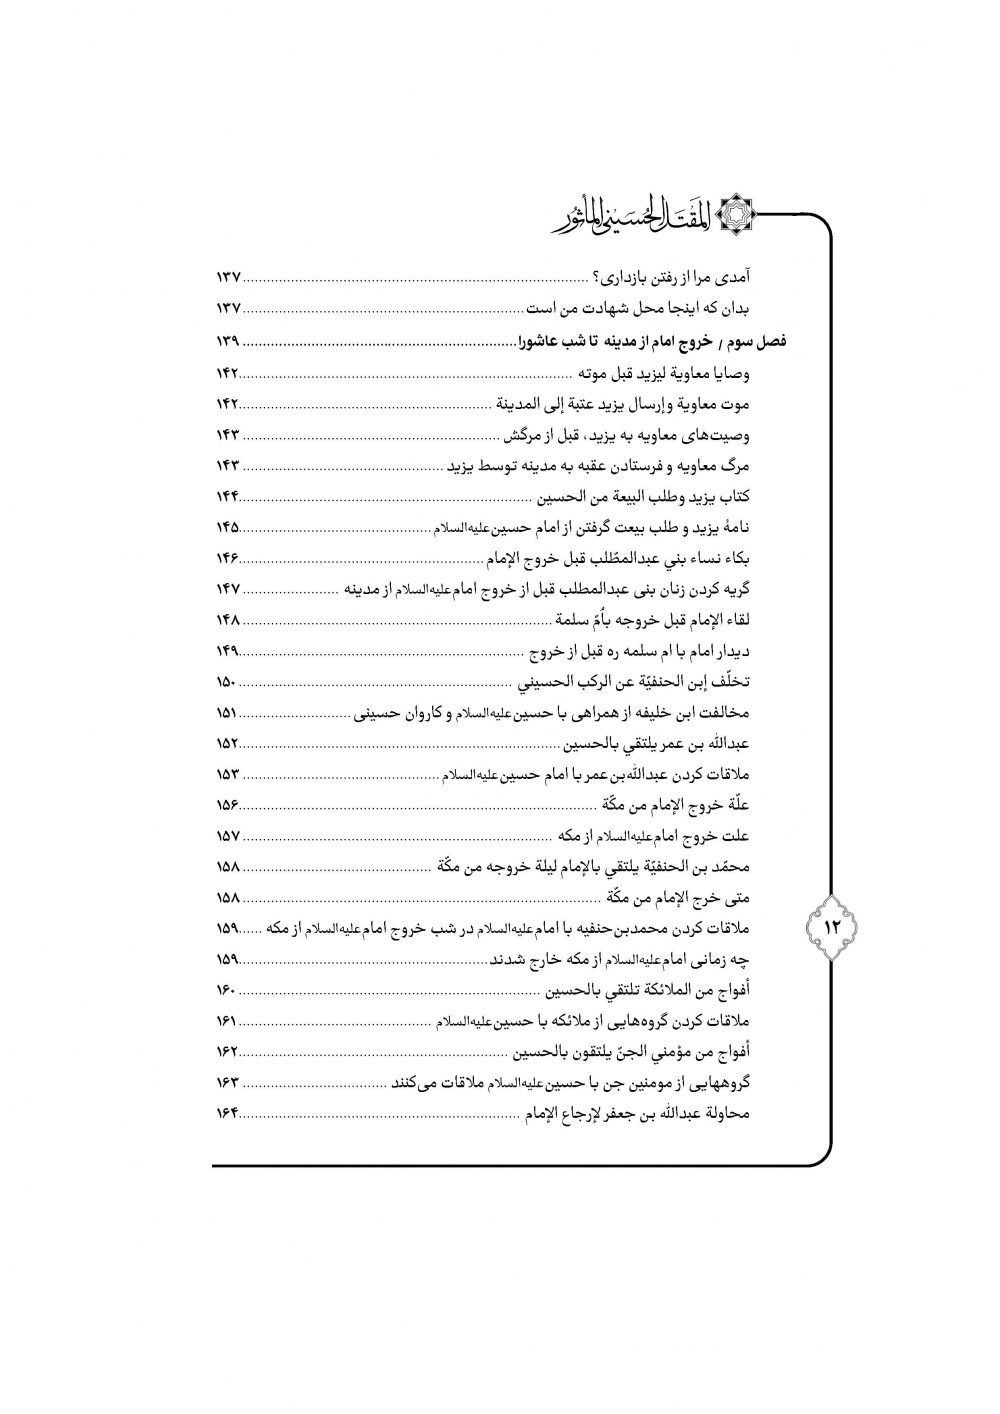 المَقْتَل الحُسَیْنی المأثُور
آمدی مرا از رفتن بازداری؟ ........ ۱۳۷
بدان که اینجا محل شهادت من است ........ ۱۳۷
فصل سوم / خروج امام از مدینه تا شب عاشورا ........ ۱۳۹
وصایا معاویة لیزید قبل موته ........ ۱۴۲
موت معاویة وإرسال یزید عتبة إلی المدینة ........ ۱۴۲
وصیت‌های معاویه به یزید، قبل از مرگش ........ ۱۴۳
مرگ معاویه و فرستادن عقبه به مدینه توسط یزید ........ ۱۴۳
کتاب یزید وطلب البیعة من الحسین ........ ۱۴۴
نامۀ یزید و طلب بیعت گرفتن از امام حسین علیه‌السلام ........ ۱۴۵
بکاء نساء بني عبدالمطّلب قبل خروج الإمام ........ ۱۴۶
گریه کردن زنان بنی عبدالمطلب قبل از خروج امام علیه‌السلام از مدینه ........ ۱۴۷
لقاء الإمام قبل خروجه بأمّ سلمة ........ ۱۴۸
دیدار امام با ام سلمه ره قبل از خروج ........ ۱۴۹
تخلّف إبن الحنفیّة عن الرکب الحسیني ........ ۱۵۰
مخالفت ابن خلیفه از همراهی با حسین علیه‌السلام و کاروان حسینی ........ ۱۵۱
عبدالله بن عمر یلتقي بالحسین ........ ۱۵۲
ملاقات کردن عبدالله‌بن‌عمر با امام حسین علیه‌السلام ........ ۱۵۳
علّة خروج الإمام من مکّة ........ ۱۵۶
علت خروج امام علیه‌السلام از مکه ........ ۱۵۷
محمّد بن الحنفیّة یلتقي بالإمام لیلة خروجه من مکّة ........ ۱۵۸
متی خرج الإمام من مکّة ........ ۱۵۸
ملاقات کردن محمدبن‌حنفیه با امام علیه‌السلام در شب خروج امام علیه‌السلام از مکه ...... ۱۵۹
چه زمانی امام علیه‌السلام از مکه خارج شدند ........ ۱۵۹
۱۲
أفواج من الملائکة تلتقي بالحسین ........ ۱۶۰
ملاقات کردن گروه‌هایی از ملائکه با حسین علیه‌السلام ........ ۱۶۱
أفواج من مؤمني الجنّ یلتقون بالحسین ........ ۱۶۲
گروههایی از مومنین جن با حسین علیه‌السلام ملاقات می‌کنند ........ ۱۶۳
محاولة عبدالله بن جعفر لإرجاع الإمام ........ ۱۶۴